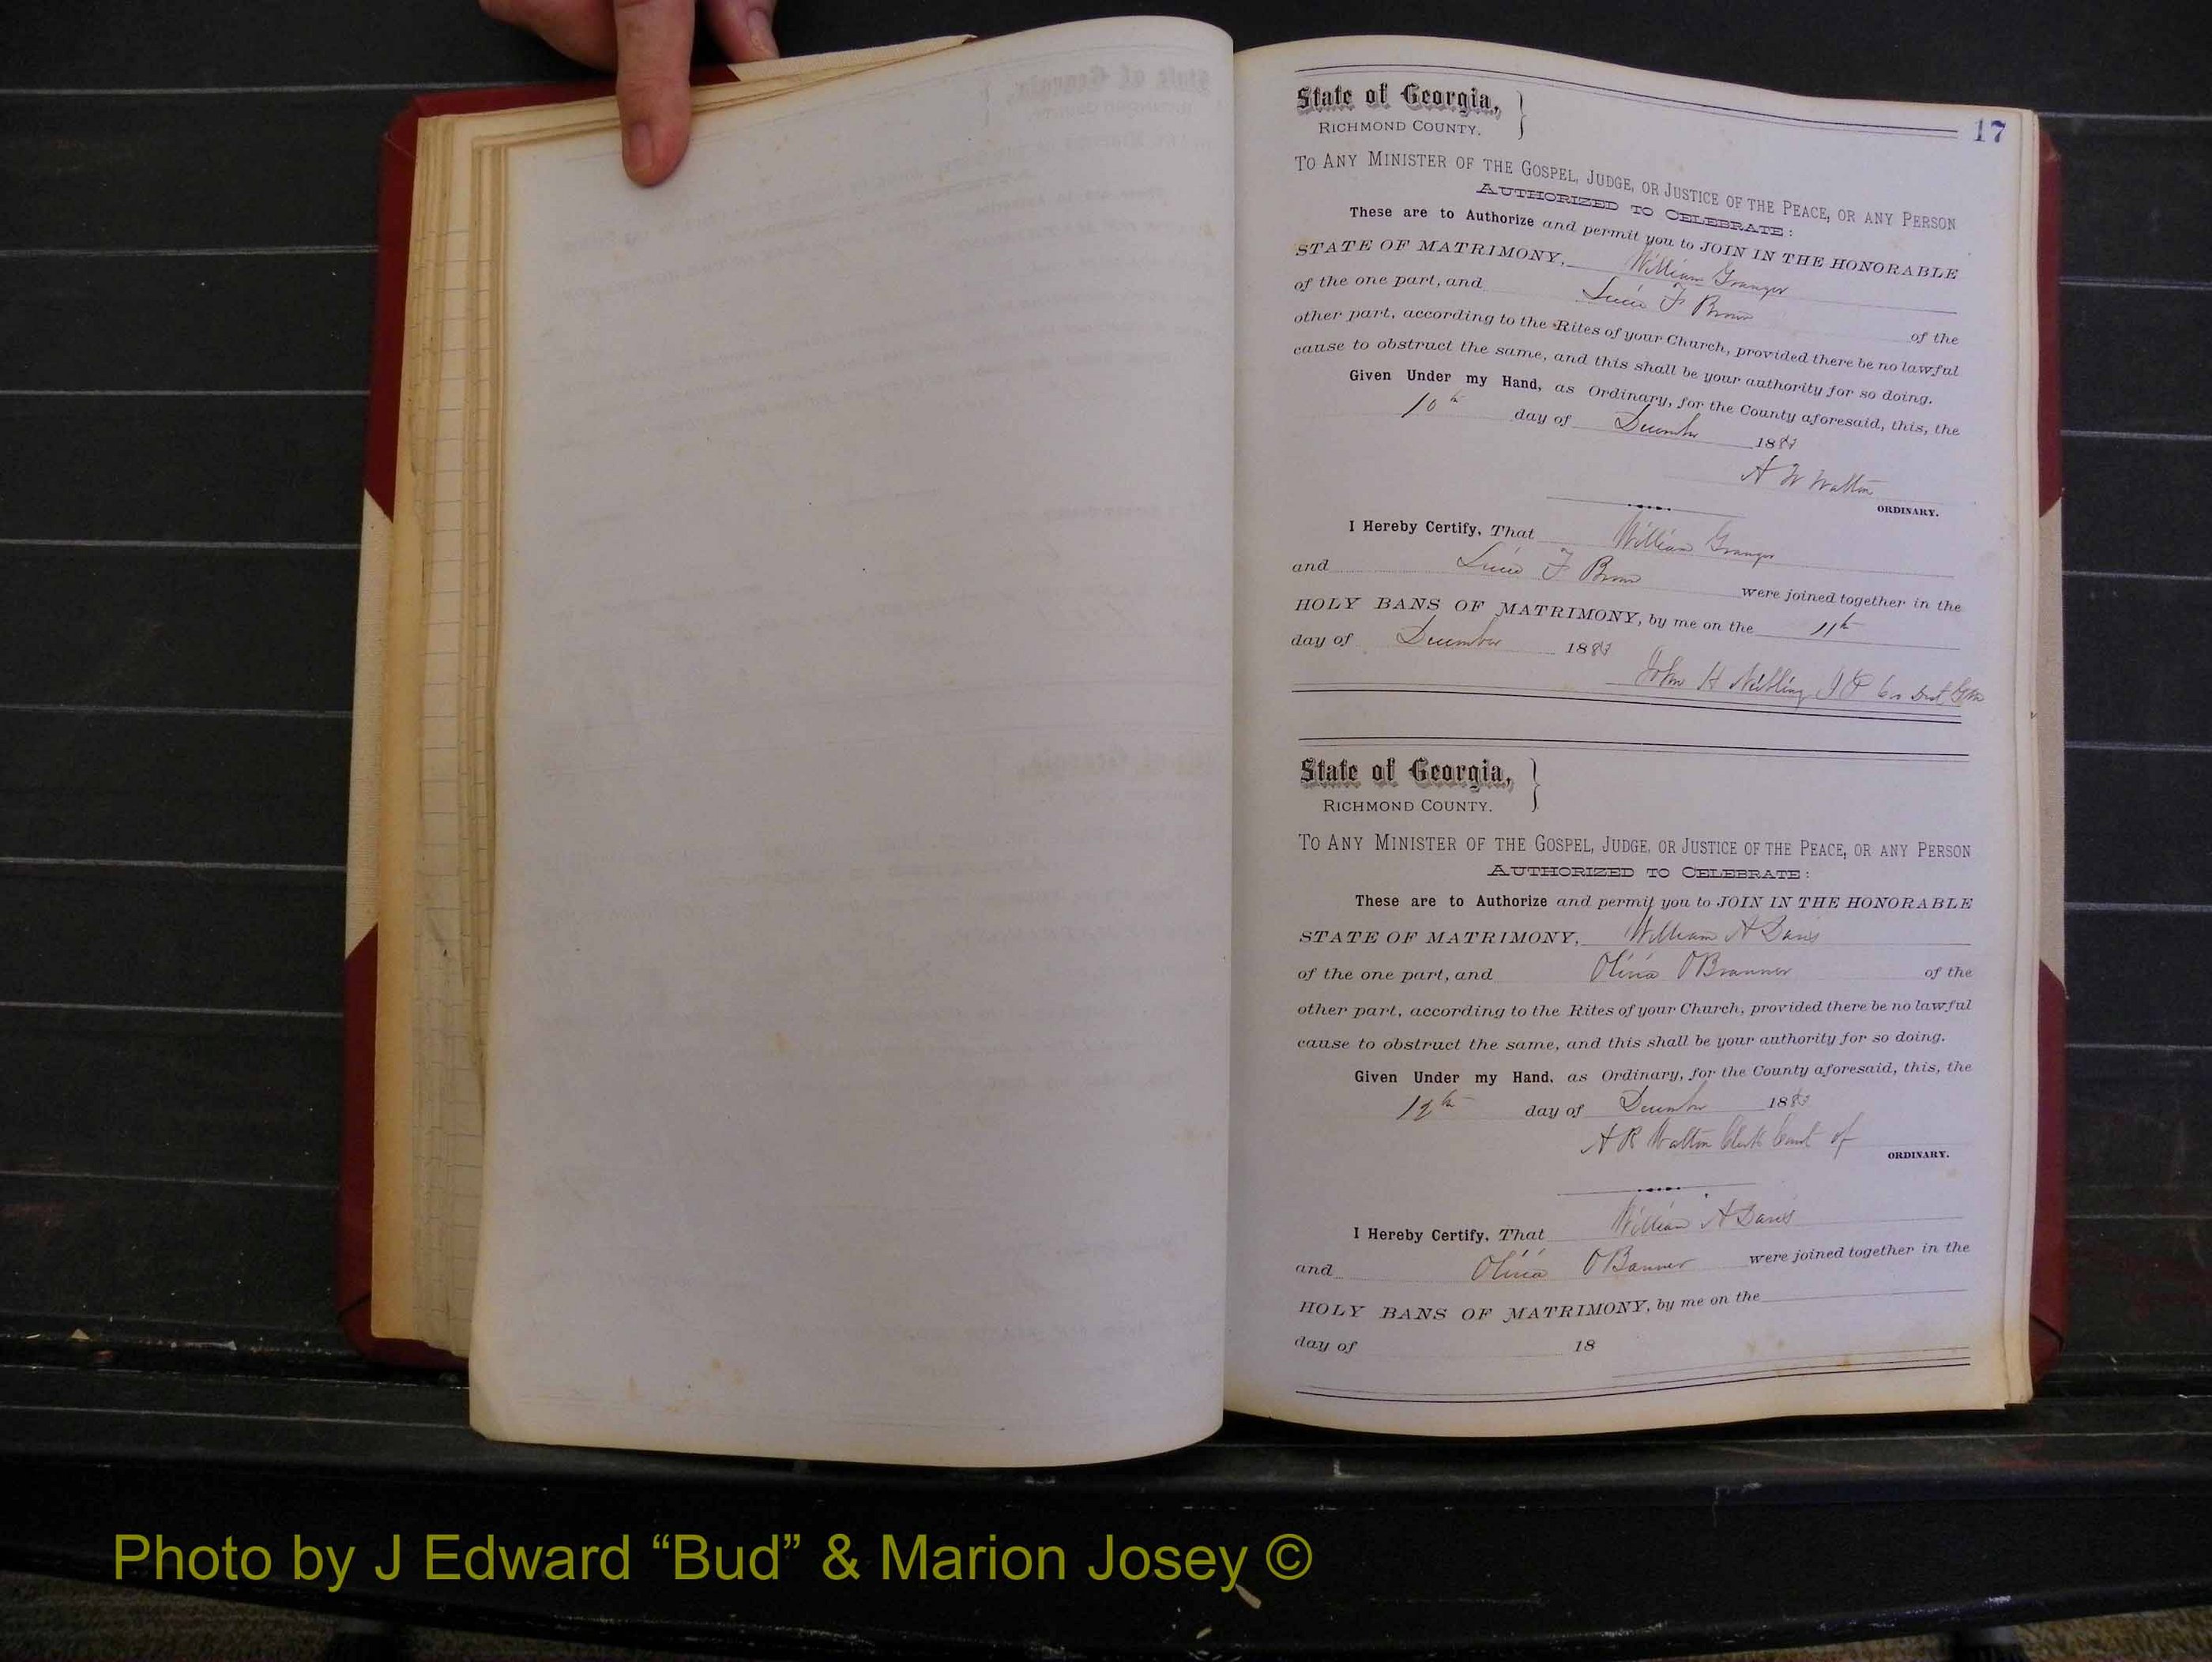 17
State of Georgia, }
RICHMOND COUNTY.
TO ANY MINISTER OF THE GOSPEL, JUDGE, OR JUSTICE OF THE PEACE, OR ANY PERSON
AUTHORIZED TO CELEBRATE:
These are to Authorize and permit you to JOIN IN THE HONORABLE
STATE OF MATRIMONY, William Granger
of the one part, and F Brown of the
other part, according to the Rites of your Church, provided there be no lawful
cause to obstruct the same, and this shall be your authority for so doing.
Given Under my Hand, as Ordinary, for the County aforesaid, this, the
10th day of December 188
A Walton
ORDINARY.
I Hereby Certify, That William Granger
and F Brown were joined together in the
HOLY BANS OF MATRIMONY, by me on the 11th
day of December 188
John H
State of Georgia, }
RICHMOND COUNTY.
TO ANY MINISTER OF THE GOSPEL, JUDGE, OR JUSTICE OF THE PEACE, OR ANY PERSON
AUTHORIZED TO CELEBRATE:
These are to Authorize and permit you to JOIN IN THE HONORABLE
STATE OF MATRIMONY, William A Davis
of the one part, and Olivia O of the
other part, according to the Rites of your Church, provided there be no lawful
cause to obstruct the same, and this shall be your authority for so doing.
Given Under my Hand, as Ordinary, for the County aforesaid, this, the
12th day of December 188
A R Walton Clerk Court of
ORDINARY.
I Hereby Certify, That William A Davis
and Olivia O were joined together in the
HOLY BANS OF MATRIMONY, by me on the
day of 18
Photo by J Edward “Bud” & Marion Josey ©